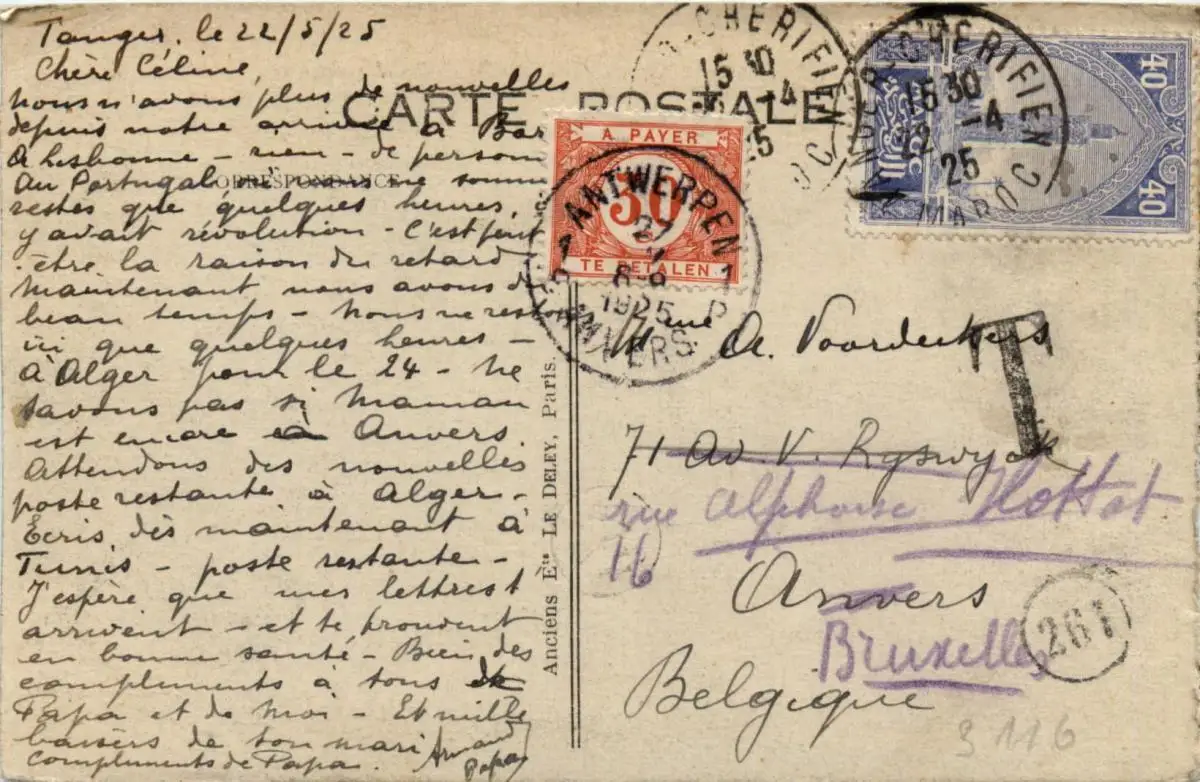 Tanger, le 22/5/25
Chère Céline,
Nous n'avons plus de nouvelles
depuis notre arrivée à Bar
A Lisbonne - rien - de person
Au Portugal ne somm
restés que quelques heures,
y avait révolution - C'est peut
être la raison du retard
Maintenant nous avons d
beau temps - Nous ne restons
ici que quelques heures -
à Alger pour le 24 - Ne
savons pas si Maman
est encore à Anvers.
Attendons des nouvelles
poste restante à Alger -
Ecris dès maintenant à
Tunis - poste restante -
J'espère que mes lettres t
arrivent - et te trouvent
en bonne santé - Bien des
compliments à tous de
Papa et de moi - Et mille
baisers de ton mari Armand
Compliments de Papa. Papa
CARTE POSTALE
CORRESPONDANCE
Anciens Ets LE DELEY, Paris.
A PAYER
50
TE BETALEN
ANTWERPEN 1
27
6-9
1925
ANVERS
CHERIFIEN
15 30
-4
25
OC
TANGER-CHERIFIEN
15 30
22 -4
25
MAROC
40
40
Maroc
T
Mme A. Voordeckers
71 Av V. Ryswyck
rue Alphonse Hottat
16
Anvers
Bruxelles
Belgique
261
3116